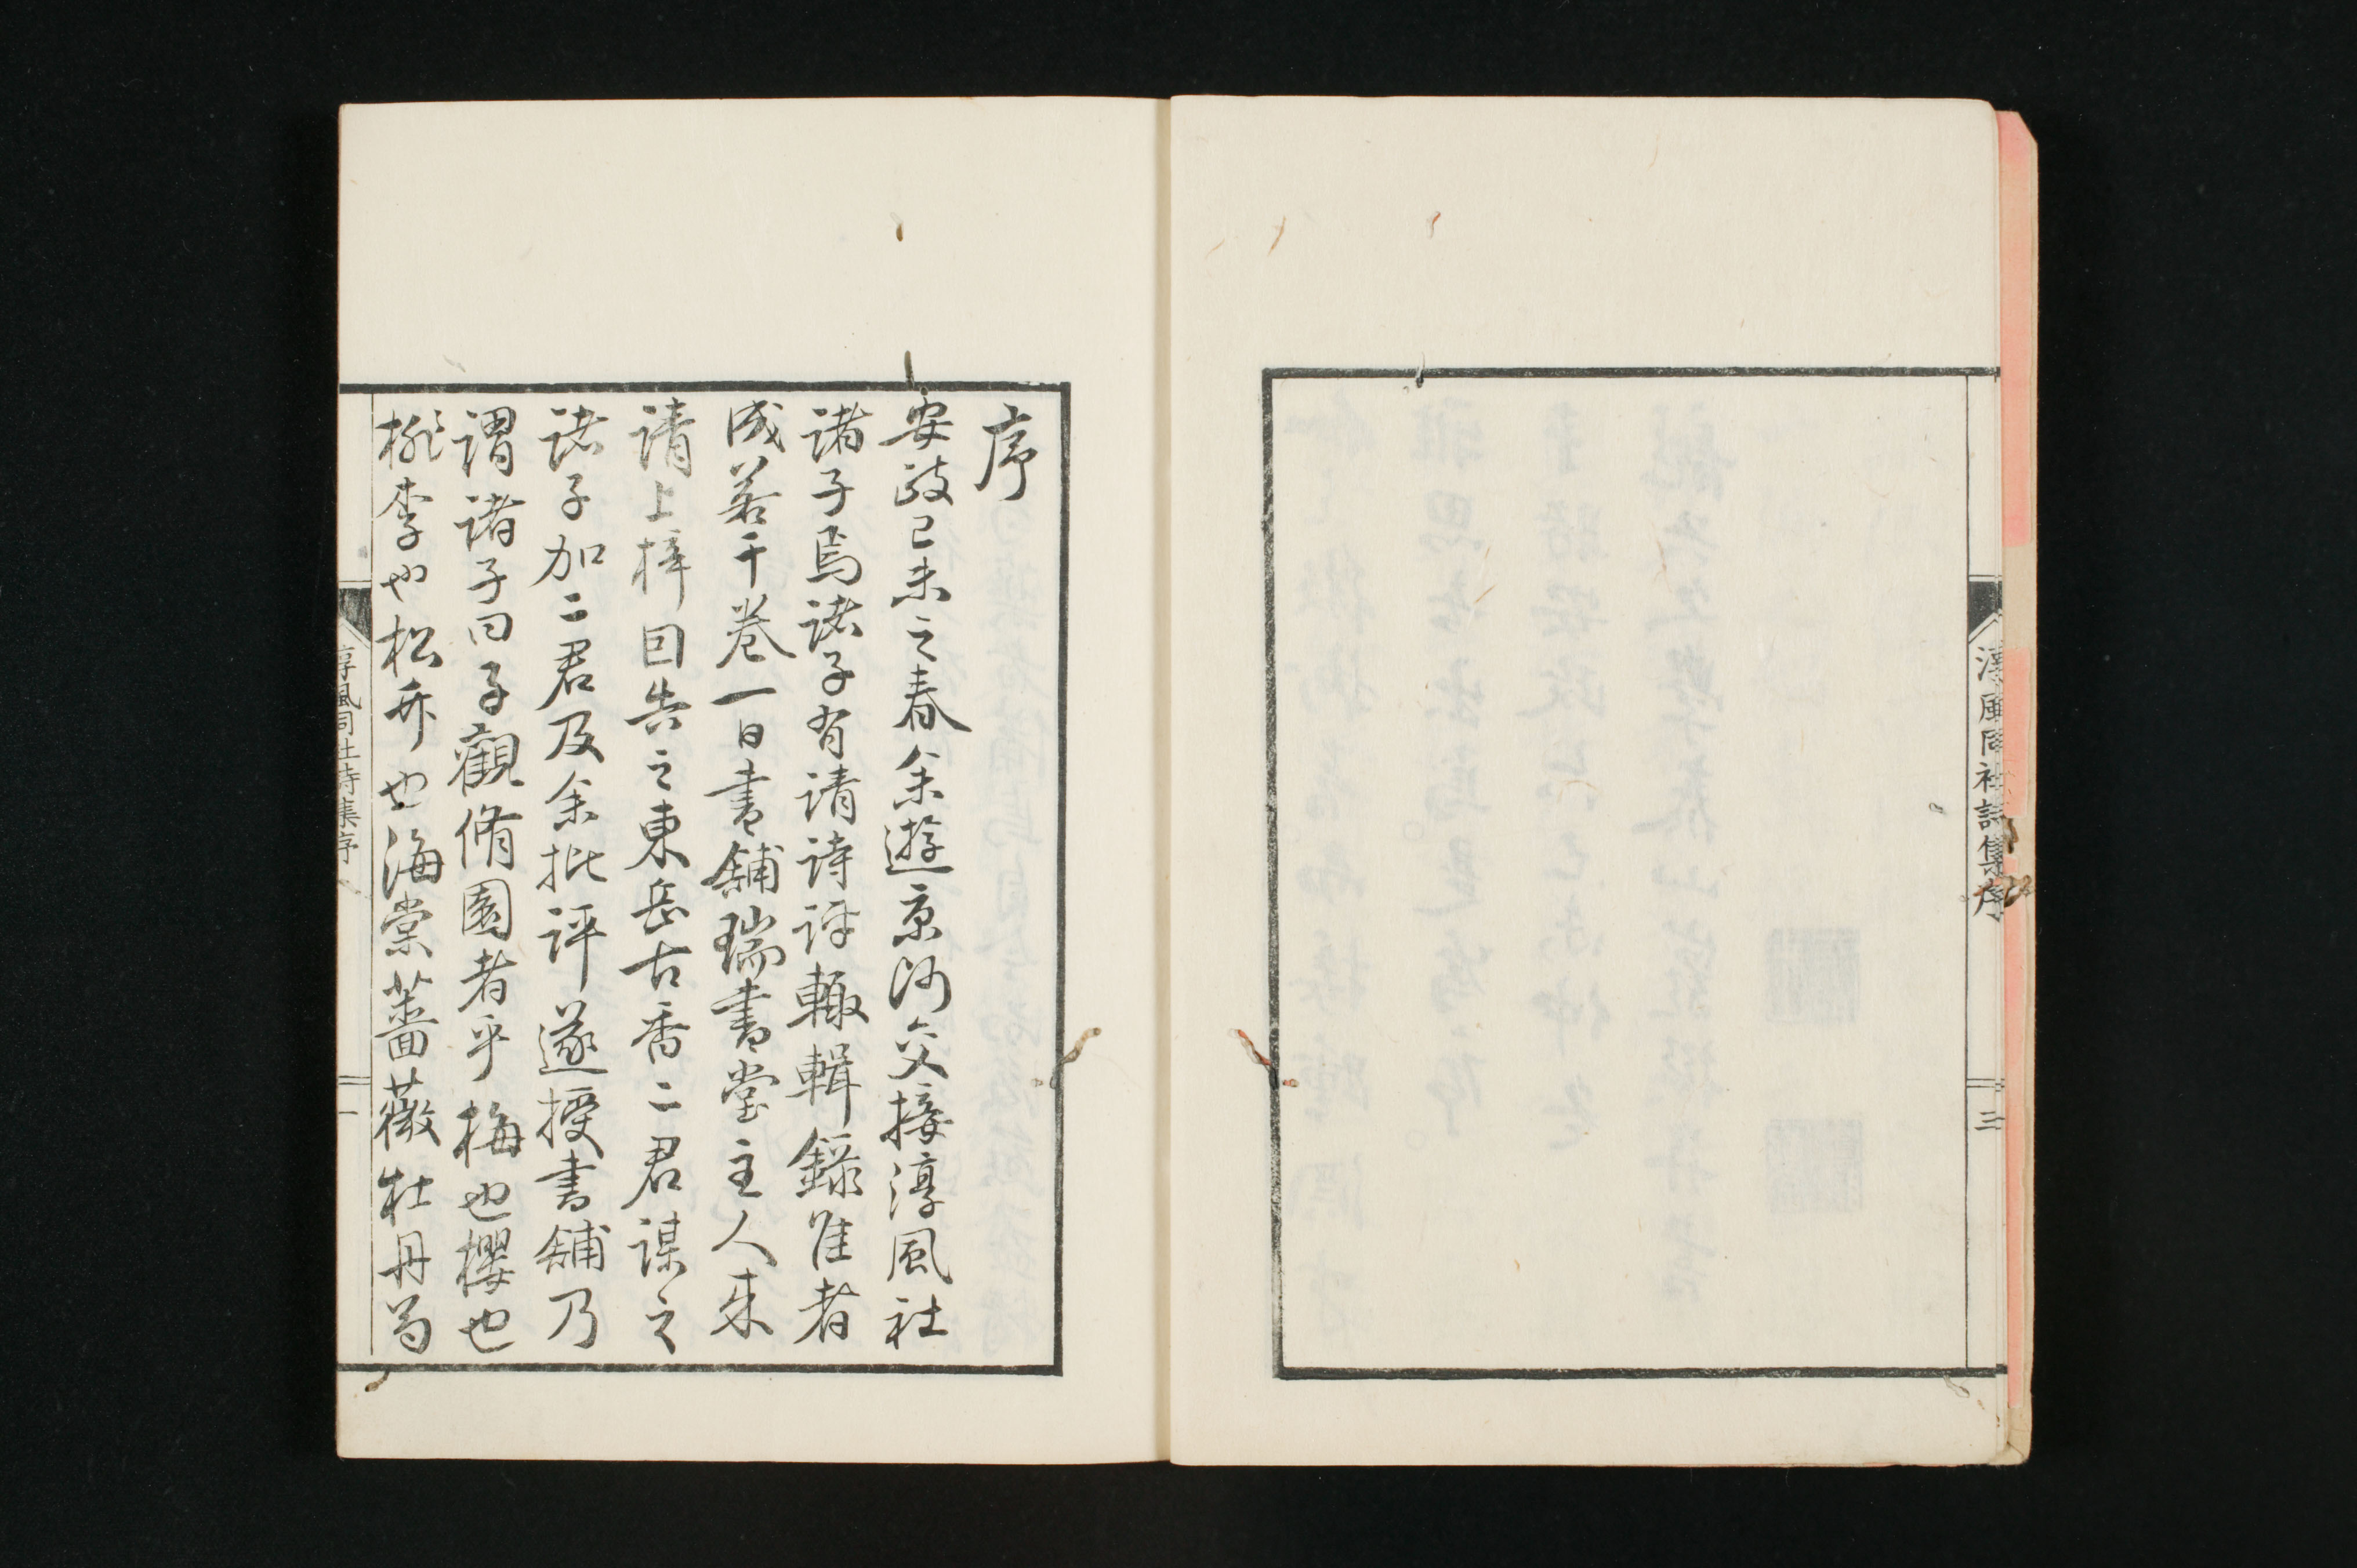 淳風同社詩集序
三
序
安政己未之春余遊京師交接淳風社
諸子焉諸子有請詩評輙輯錄隹者
成若干卷一日書舖瑞書堂主人来
請上梓因告之東岳古香二君謀之
諸子加二君及余批評遂授書舖乃
謂諸子曰子觀脩園者乎梅也櫻也
桃李也松竹也海棠薔薇牡丹芍
淳風同社詩集序
一